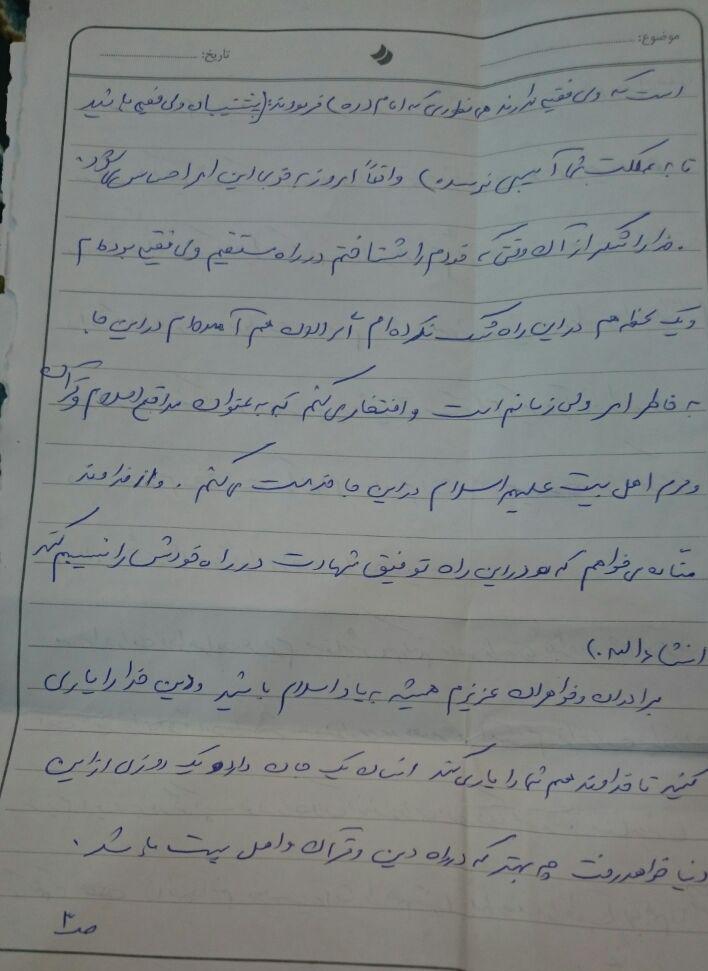 موضوع:
تاریخ:
است که ولی فقیه دارند همانطوری که امام (ره) فرمودند: (پشتیبان ولی فقیه باشید
تا به مملکت شما آسیبی نرسد) واقعاً امروز به خوبی این امر احساس می‌شود.
خدا را شکر از آن وقتی که خودم را شناختم در راه مستقیم ولی فقیه بوده‌ام
و یک لحظه هم در این راه شک نکرده‌ام اگر الان هم آمده‌ام در این جا
به خاطر امر ولی زمانم است و افتخار می‌کنم که به عنوان مدافع اسلام و قرآن
و حرم اهل بیت علیهم السلام در این جا خدمت می‌کنم. و از خداوند
منّان می‌خواهم که در این راه توفیق شهادت در راه خودش را نسیبم کند
انشاءالله.)
برادران و خواهران عزیزم همیشه به یاد اسلام باشید و دین خدا را یاری
کنید تا خداوند هم شما را یاری کند انسان یک جان دارد و یک روزی از این
دنیا خواهد رفت چه بهتر که در راه دین و قرآن و اهل بیت باشد.
ص۳